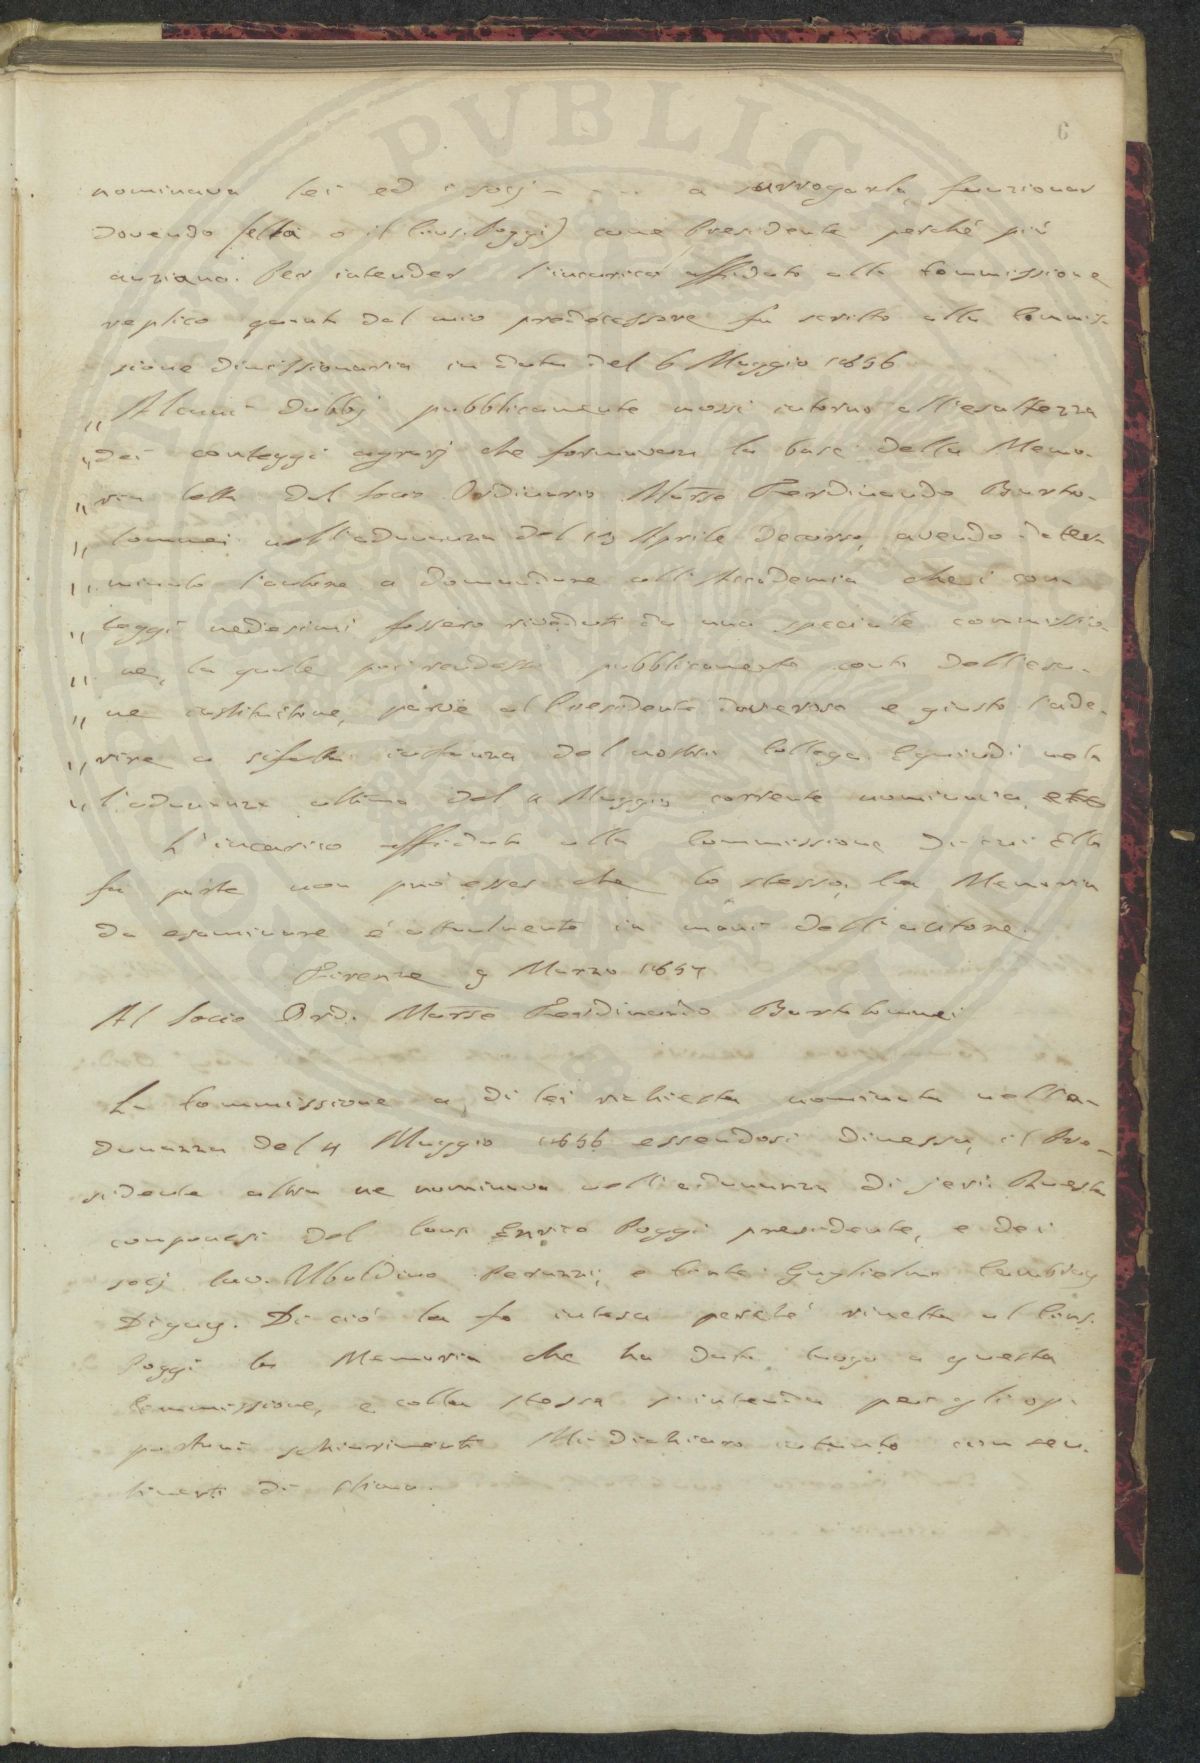 6
nominava lei ed i socj - - - - a surrogarla, funzionar
dovendo (ella o il Cons. Poggi) come Presidente perché più
anziano. Per intender l'incarico affidato alla Commissione
replico quanto dal mio predecessore fu scritto alla Commis-
sione dimissionaria in data del 6 Maggio 1856
„ Alcuni dubbj pubblicamente mossi intorno all'esattezza
„ dei conteggi agrarj che formavan la base della Memo-
„ ria letta dal Socio Ordinario Marse Ferdinando Barto-
„ lommei nell'adunanza del 13 Aprile decorso, avendo deter
„ minato l'autore a domandare all'Accademia che i con-
„ teggi medesimi fossero riveduti da una speciale commissio-
„ ne, la quale poi rendesse pubblicamente conto dell'esa-
„ me istituitone, parve al Presidente doveroso e giusto l'ade-
„ rire a sifatta instanza del nostro Collega. E quindi nel
„ l'adunanza ultima del 4 Maggio corrente nominava etc
L'incarico affidato alla Commissione di cui Ella
fa parte non può esser che lo stesso; la Memoria
da esaminare è attualmente in mani dell'autore.
Firenze 9 Marzo 1857
Al Socio Ord. Marse Ferdinando Bartolommei
La Commissione a di lei richiesta nominata nell'a-
dunanza del 4 Maggio 1856 essendosi dimessa, il Pre-
sidente altra ne nominava nell'adunanza di jeri. Questa
componesi del Cons. Enrico Poggi presidente, e dei
socj Cav. Ubaldino Peruzzi, e Conte Guglielmo Cambray
Digny. Di ciò la fo intesa perché rimetta al Cons.
Poggi la Memoria che ha dato luogo a questa
Commissione, e colla stessa s'intenda per gli op-
portuni schiarimenti. Mi dichiaro intanto con sen-
timenti di stima.